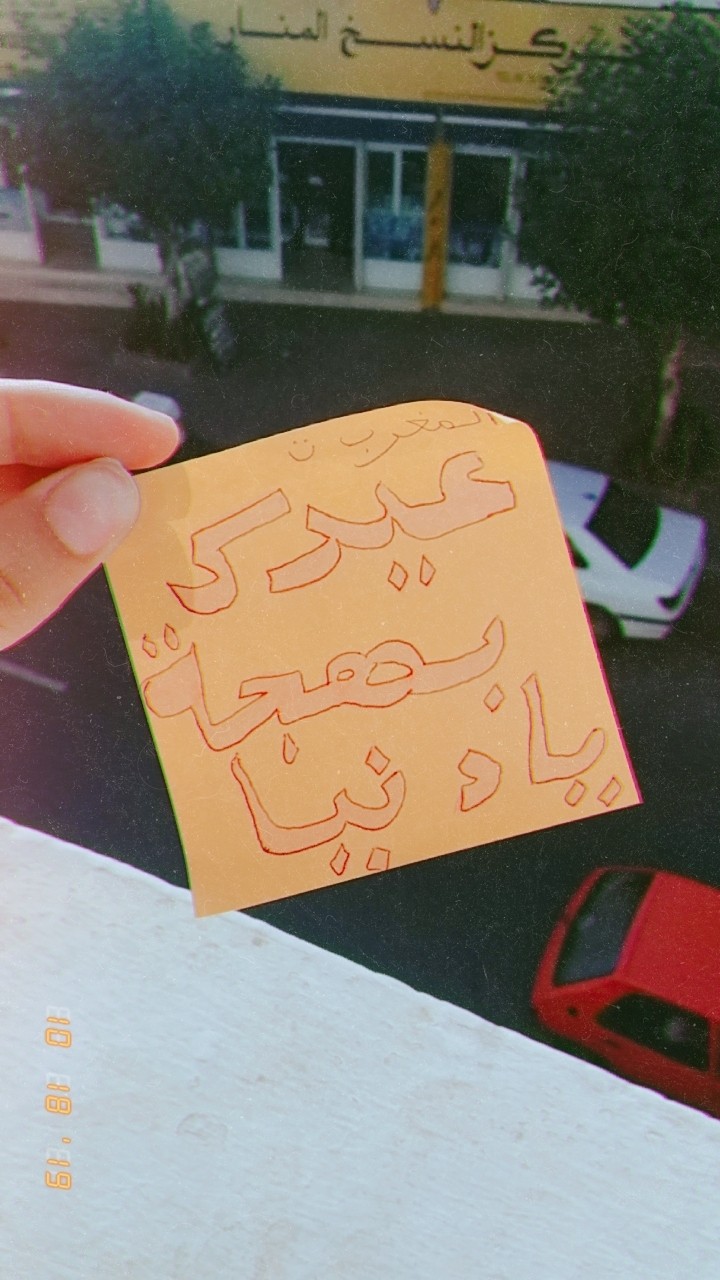 مركز النسخ المنار
المغرب ت
عيدك
بهجة
يا دنيا
10 18 '19